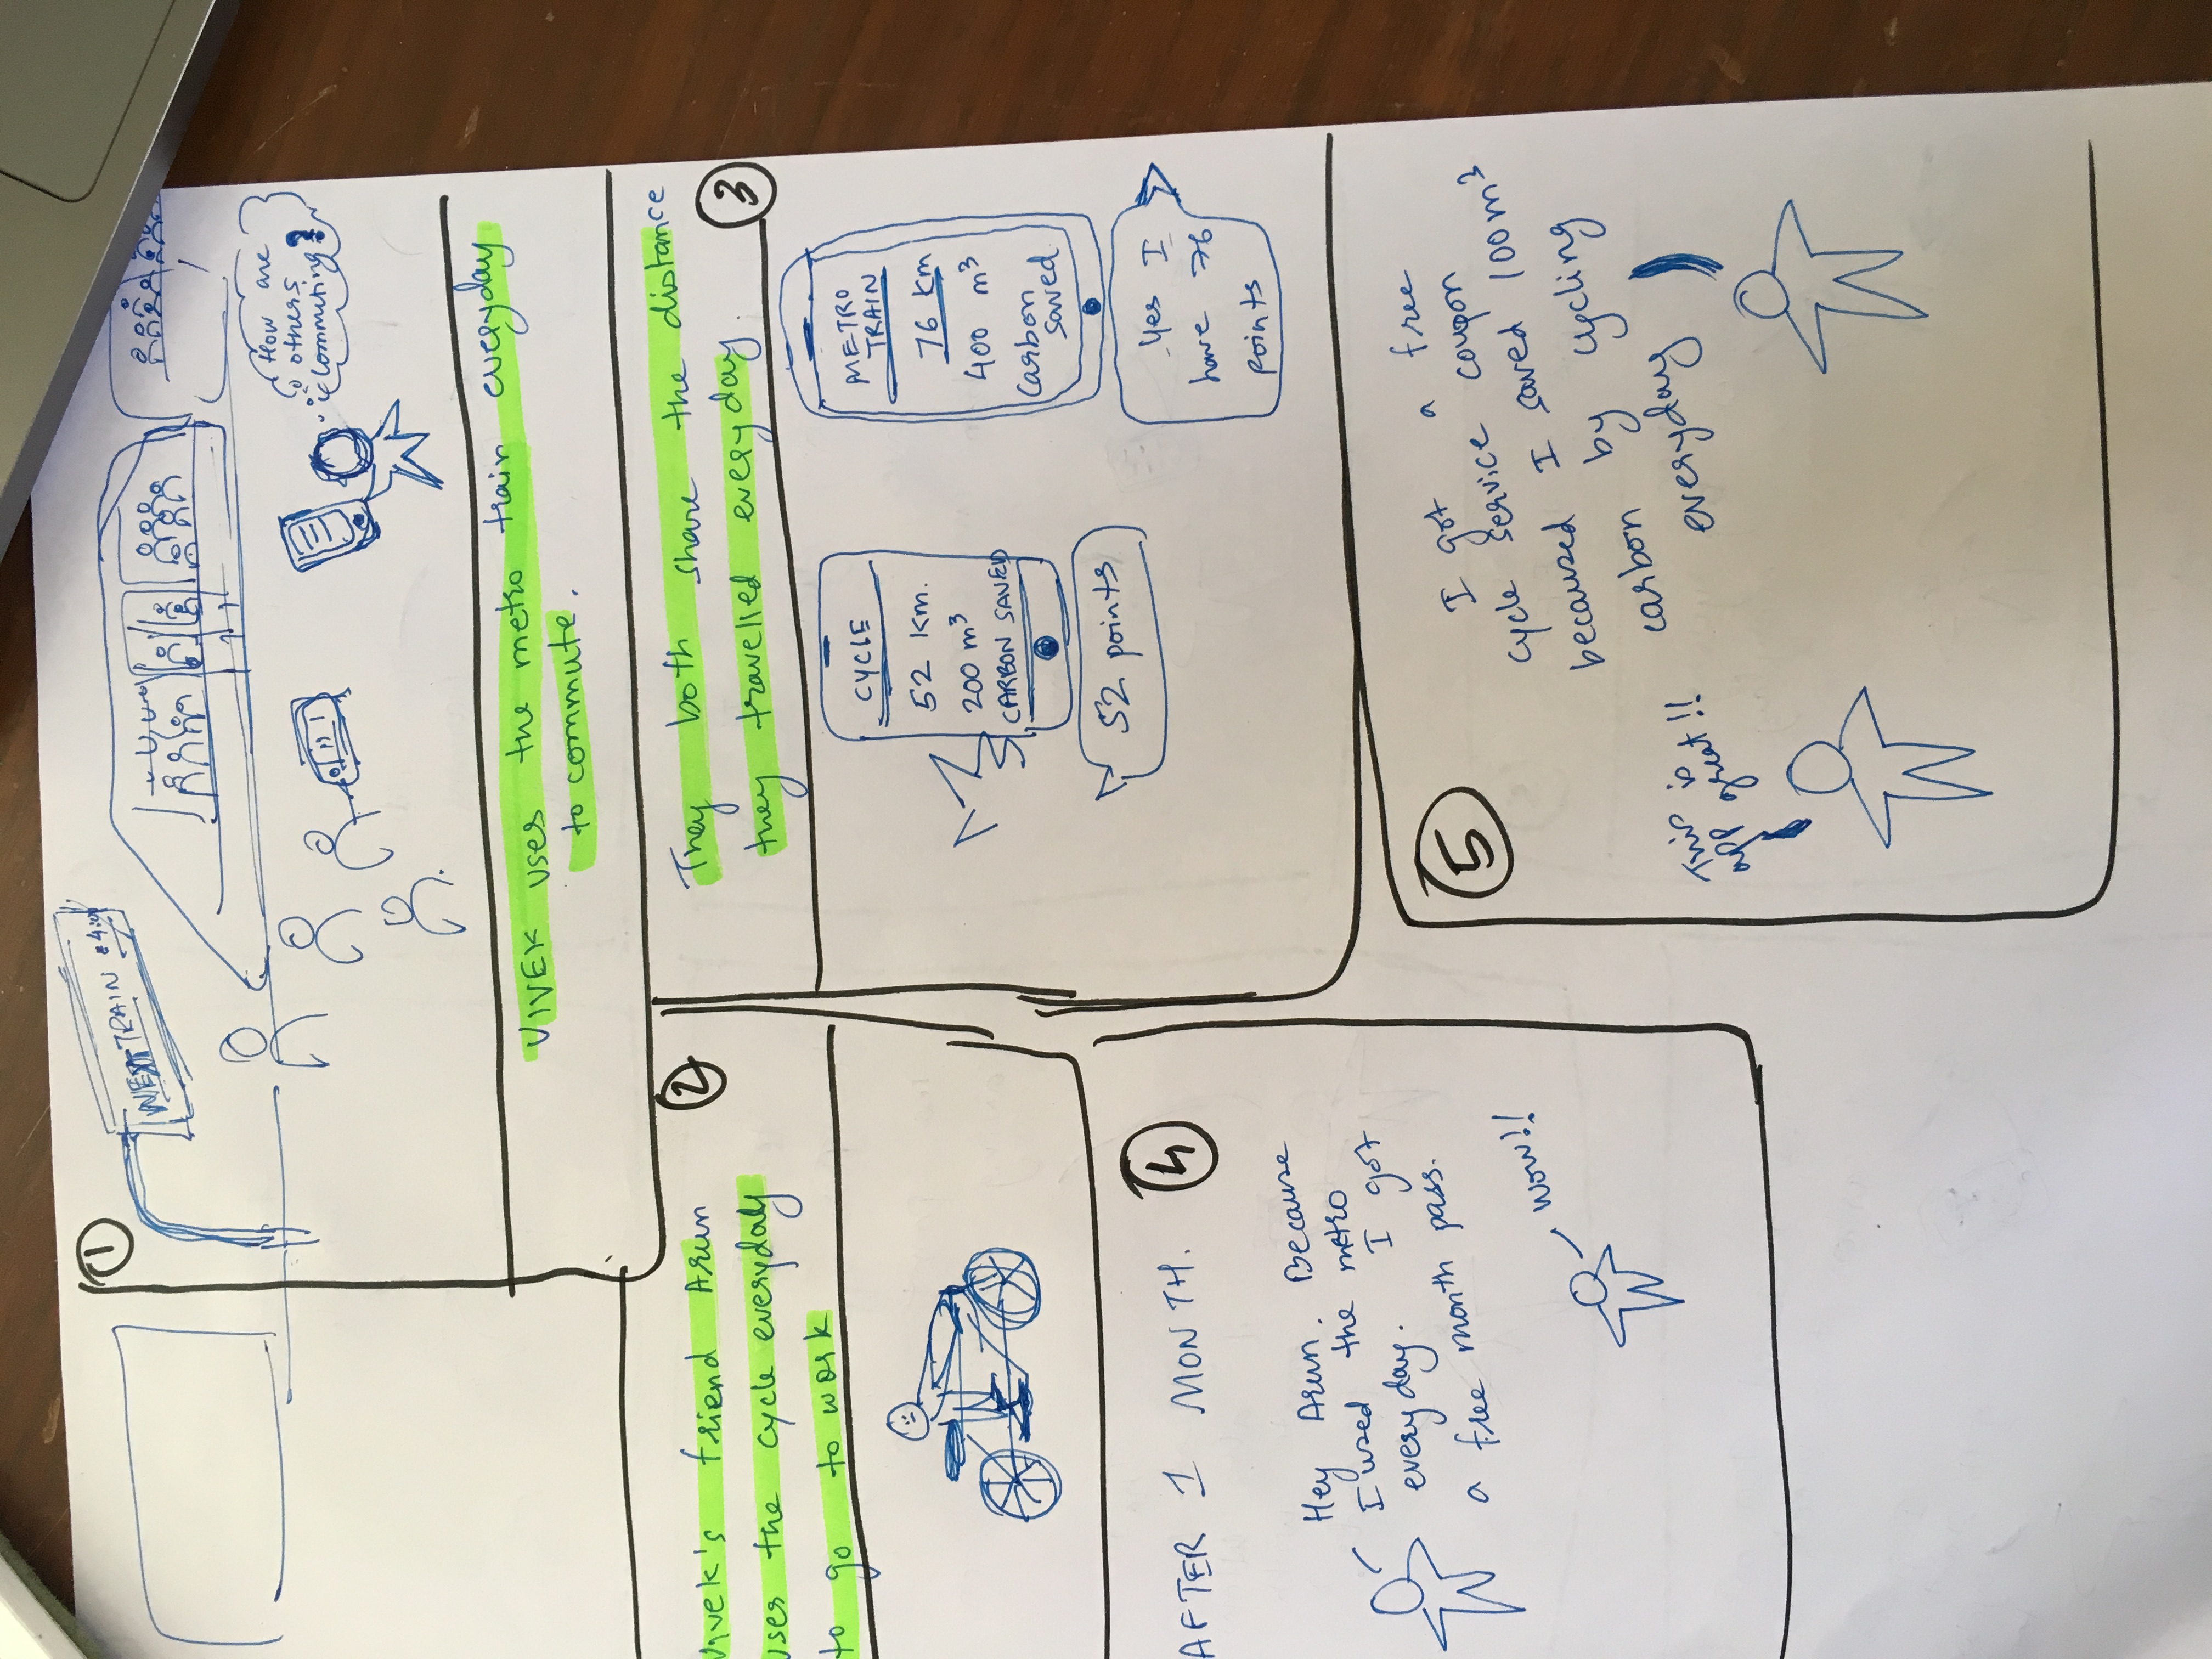 1
NEXT TRAIN
How are
others
commuting?
VIVEK uses the metro train everyday
to commute.
2
Vivek's friend Arun
uses the cycle everyday
to go to work
They both share the distance
they travelled everyday.
3
CYCLE
52 Km.
200 m³
CARBON SAVED
52 points
METRO
TRAIN
76 Km
400 m³
Carbon
saved
Yes I
have 76
points
4
AFTER 1 MONTH.
Hey Arun. Because
I used the metro
everyday. I got
a free month pass.
WOW!!
5
I got a free
cycle service coupon
becaused I saved 100m³
carbon by cycling
everyday
This is
app great!!